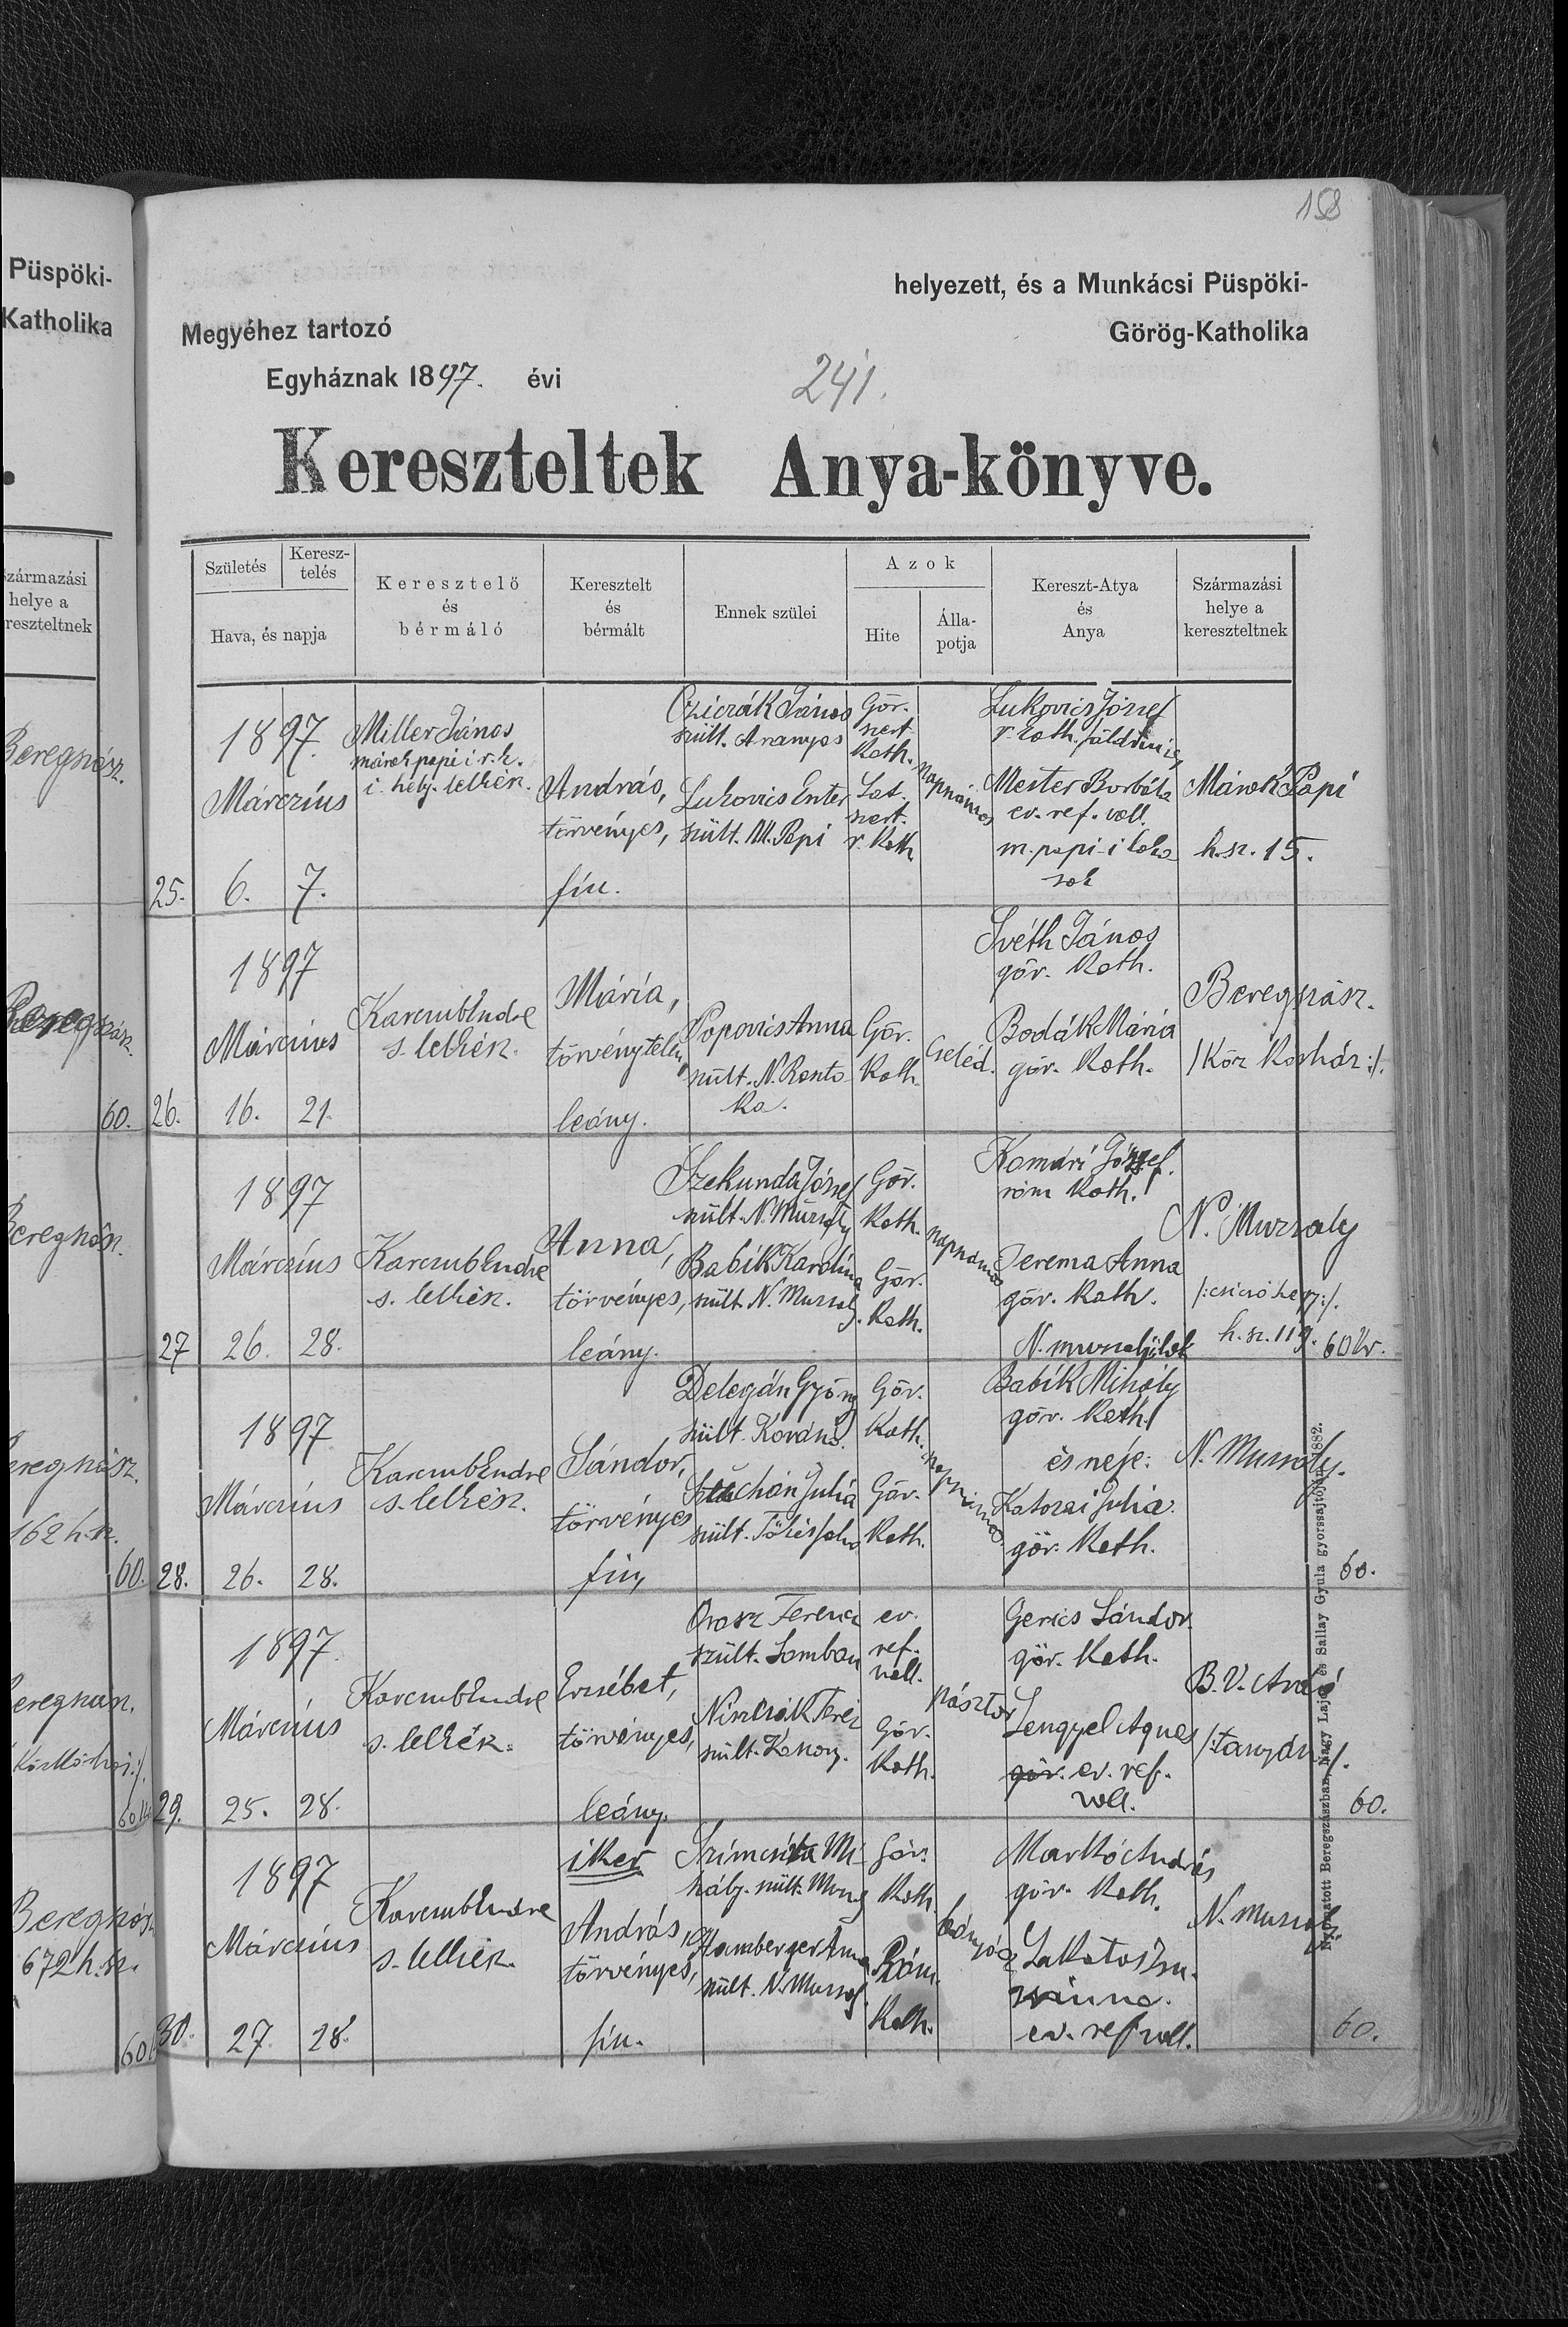 158
Püspöki-
Katholika
helyezett, és a Munkácsi Püspöki-
Megyéhez tartozó
Görög-Katholika
Egyháznak 1897. évi
241.
Kereszteltek Anya-könyve.
Származási
helye a
kereszteltnek
Születés
Keresz-
telés
Hava, és napja
Keresztelő
és
bérmáló
Keresztelt
és
bérmált
Ennek szülei
Azok
Hite
Álla-
potja
Kereszt-Atya
és
Anya
Származási
helye a
kereszteltnek
25.
1897.
Márczius
6. 7.
Miller János
márok papi i r. k.
i. hely. lelkész.
András,
törvényes,
fiu.
Cziczák János
szült. Aranyos
Lukovics Eszter
szült. M. Papi
Gör.
szert.
Kath.
Lat.
szert.
r. Kath
napszámos
Lukovics József
r. kath. földmives
Mester Borbála
ev. ref. vall.
m. papi-i lako
sok
Márok Papi
h. sz. 15.
26.
1897
Márczius
16. 21.
s. lelkész.
Mária,
törvénytelen
leány.
Popovics Anna
szült. N.
ka.
Gör.
Kath.
Cseléd.
Svéth János
gör. Kath.
Bodák Mária
gör. Kath.
Beregszász.
/Köz Korház:/.
27
1897
Márczius
26. 28.
s. lelkész.
Anna,
törvényes,
leány.
Szekunda József
szült. N. Muzsaly
Babik Karolina
szült. N. Muzsaly.
Gör.
Kath.
Gör.
Kath.
napszámos
Komári József.
róm Kath.
Jerema Anna
gör. Kath.
N. Muzsaly
h. sz. 119. 60 kr.
28.
1897
Márczius
26. 28.
s. lelkész.
Sándor,
törvényes
fiu,
Delegán György
szült. Kovászó.
Julia
szült.
Gör.
Kath.
Gör.
Kath.
napszámos
Babik Mihály
gör. Kath.
és neje:
Julia.
gör. Kath.
N. Muzsaly.
60.
29.
1897.
Márczius
25. 28.
s. lelkész.
Erzsébet,
törvényes,
leány.
Orosz Ferencz
szült.
Teréz
szült.
ev.
ref.
vall.
Gör.
Kath.
pásztor
Gerics Sándor.
gör. Kath.
Lengyel Agnes
gör. ev. ref.
vall.
B. V. Ardó
/:tanyán:/.
60.
30.
1897
Márczius
27. 28.
s. lelkész.
iker
András,
törvényes,
fiu.
Mi-
hály. szült.
Hamberger Anna
szült. N. Muzsaly.
Gör.
Kath.
Róm.
Kath.
bányász
Markó András
gör. Kath.
Lakatos
ev. ref vall.
N. Muzsaly
60.
Beregszász.
Beregszász.
60.
Beregszász.
Beregszász.
162 h. sz.
60.
Beregszász.
Beregszász
672 h. sz.
60
Nyomatott Beregszászban, Nagy Lajos és Sallay Gyula gyorssajtóján 1882.